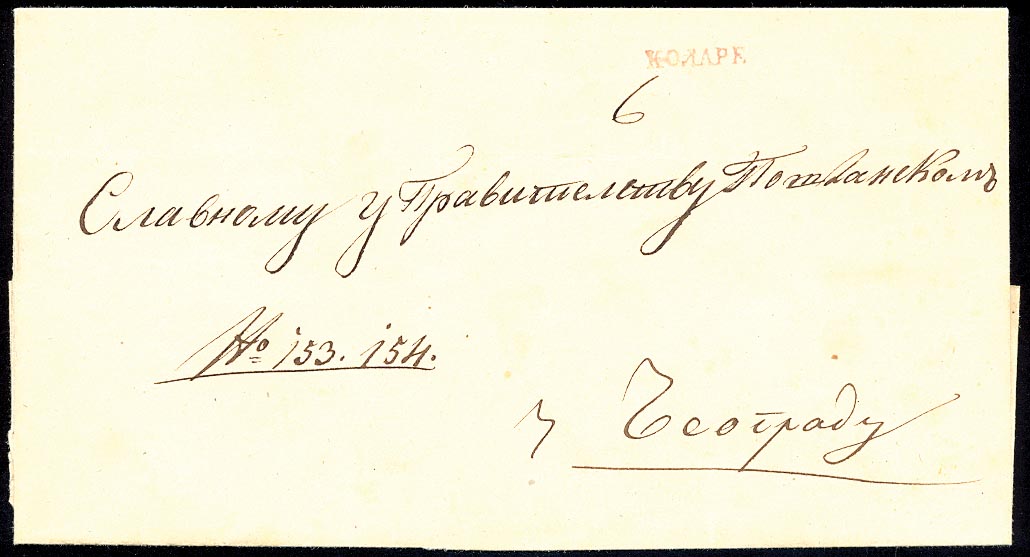 КОЛАРЕ
6
Славному Управителству Поштанскомъ
No 153. 154.
у Београду